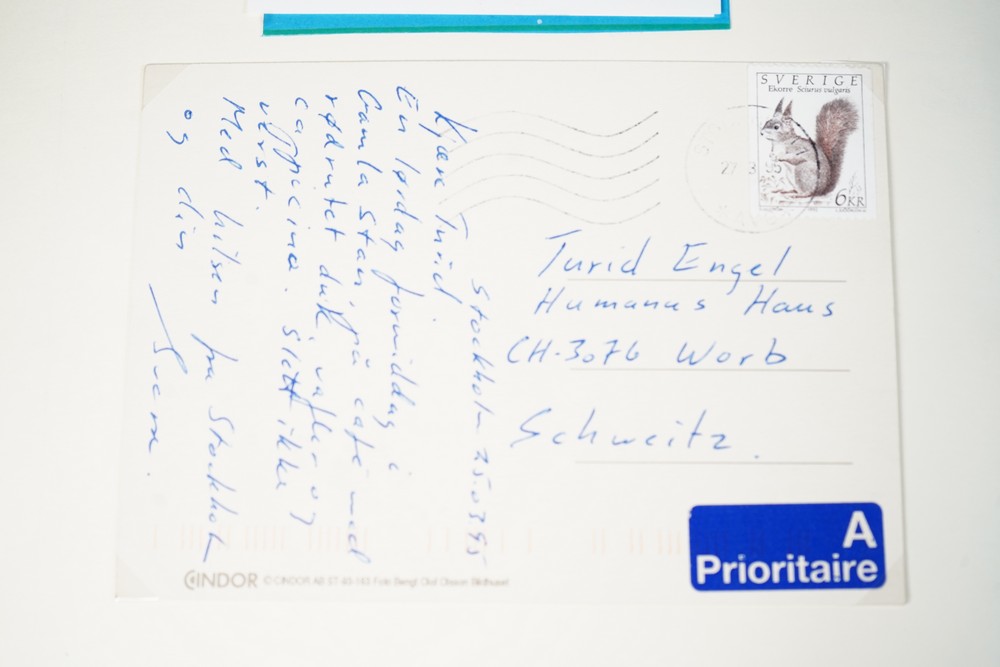 Stockholm 25.03.95
Kjære Turid.
En lørdag formiddag i
Gamla Stan, på café med
rødrutet duk, vafler og
cappucino. Slett ikke
verst.
Med hilsen fra Stockholm
og din
Sverre.
SVERIGE
Ekorre Sciurus vulgaris
6KR
27 3 95
Turid Engel
Humanus Haus
CH-3076 Worb
Schweitz.
A
Prioritaire
CINDOR © CINDOR AB ST-85-143 Foto Bengt Olof Olsson Bildhuset